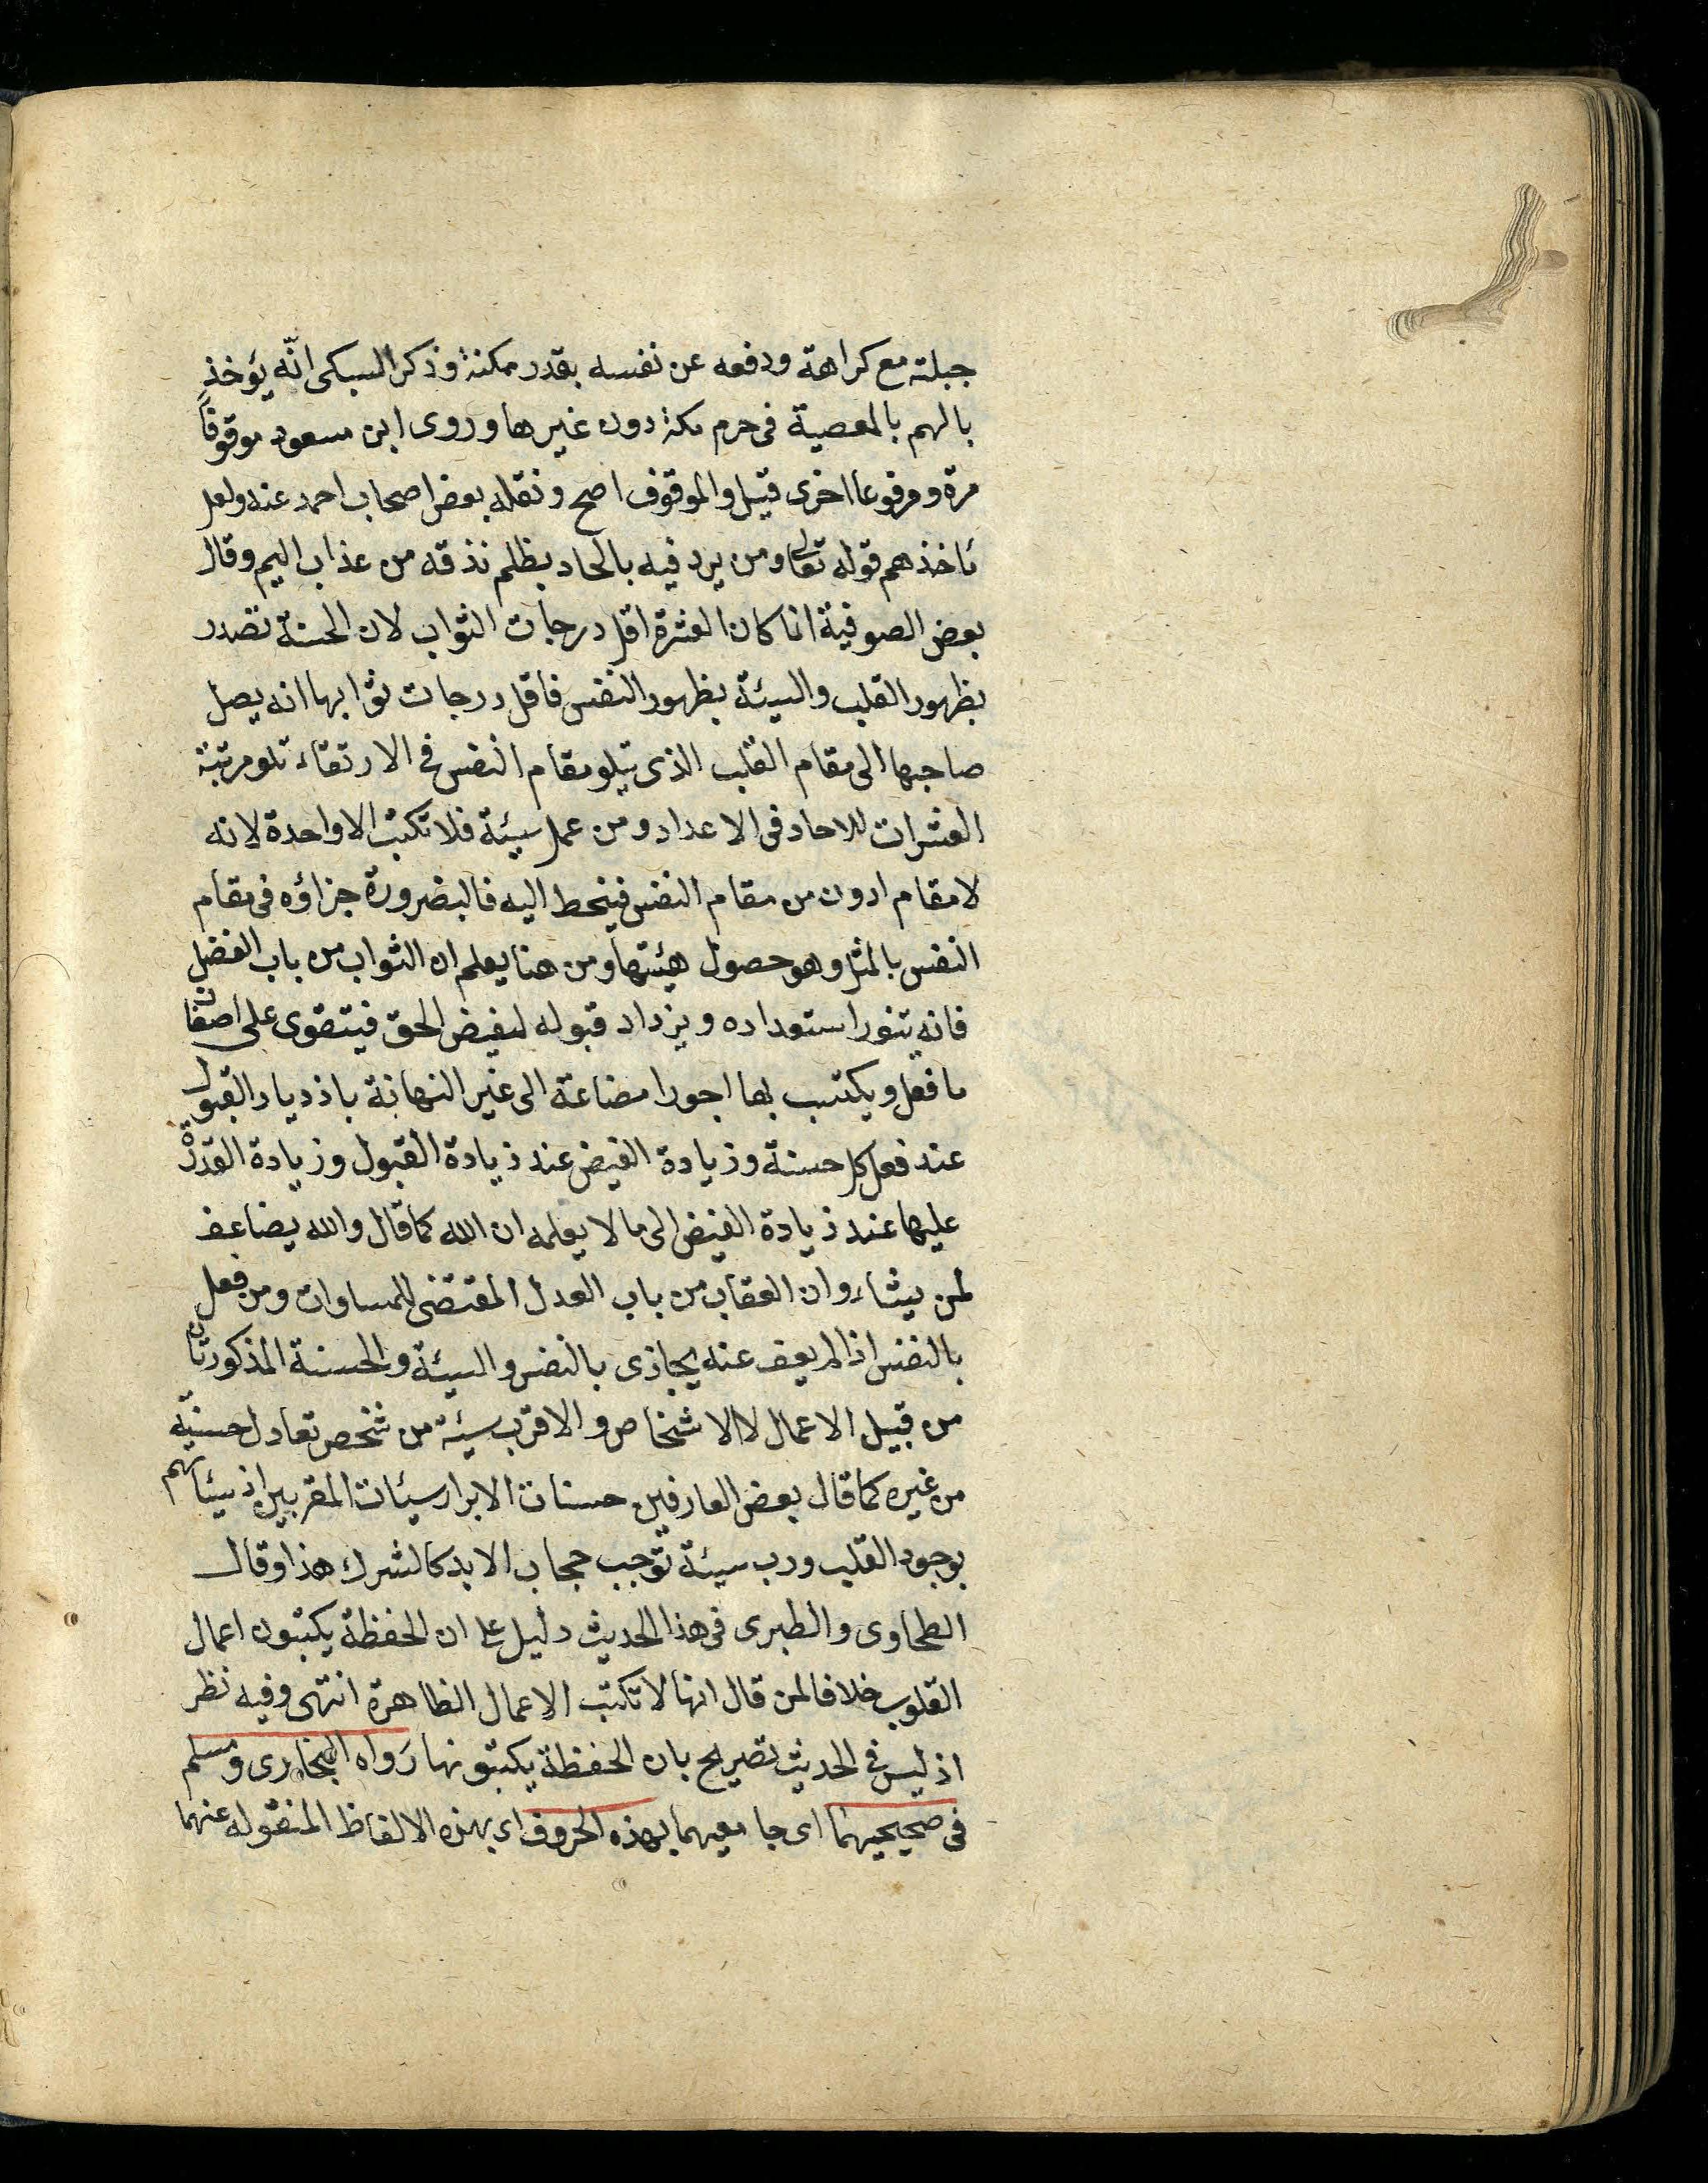 جبلته مع كراهة ودفعه عن نفسه بقدر مكنة وذكر السبكى انّه يؤخذ
بالهم بالمعصية فى حرم مكة دون غيرها وروى ابن مسعود موقوفاً
مرة ومرفوعا اخرى قيل والموقوف اصح ونقله بعض اصحاب احمد عنه ولعل
مأخذهم قوله تعالى ومن يرد فيه بالحاد بظلم نذقه من عذاب اليم وقال
بعض الصوفية انما كان العشرة اقل درجات الثواب لان الحسنة تصدر
بظهور القلب والسيئة بظهور النفس فاقل درجات ثوابها انه يصل
صاحبها الى مقام القلب الذى يتلو مقام النفس فى الارتقاء تلو مرتبة
العشرات للاحاد فى الاعداد ومن عمل سيئة فلا تكتب الا واحدة لانه
لا مقام ادون من مقام النفس فينحط اليه فالبضرورة جزاؤه فى مقام
النفس بالمثل وهو حصول هيئتها ومن هنا يعلم ان الثواب من باب الفضل
فانه يتنور استعداده ويزداد قبوله لفيض الحق فيتقوى على اضعاف
ما فعل ويكتسب بها اجورا مضاعفة الى غير النهاية باذدياد القبول
عند فعل كل حسنة وزيادة الفيض عند زيادة القبول وزيادة القدرة
عليها عند زيادة الفيض الى ما لا يعلمه ان الله كما قال والله يضاعف
لمن يشاء وان العقاب من باب العدل المقتضى للمساوات ومن فعل
بالنفس اذا لم يعف عنه يجازى بالنفس والسيئة والحسنة المذكورتان
من قبيل الاعمال لا الاشخاص والا فرب سيئة من شخص تعادل حسنة
من غيره كما قال بعض العارفين حسنات الابرار سيئات المقربين اذ سيئاتهم
بوجود القلب ورب سيئة توجب حجاب الابد كالشرك هذا وقال
الطحاوى والطبرى فى هذا الحديث دليل على ان الحفظة يكتبون اعمال
القلوب خلافا لمن قال انها لا تكتب الا الاعمال الظاهرة انتهى وفيه نظر
اذ ليس فى الحديث تصريح بان الحفظة يكتبونها رَواه البخارى ومسلم
فى صحيحيهما اى جامعيهما بهذه الحروف اى بهذه الالفاظ المنقوله عنهما